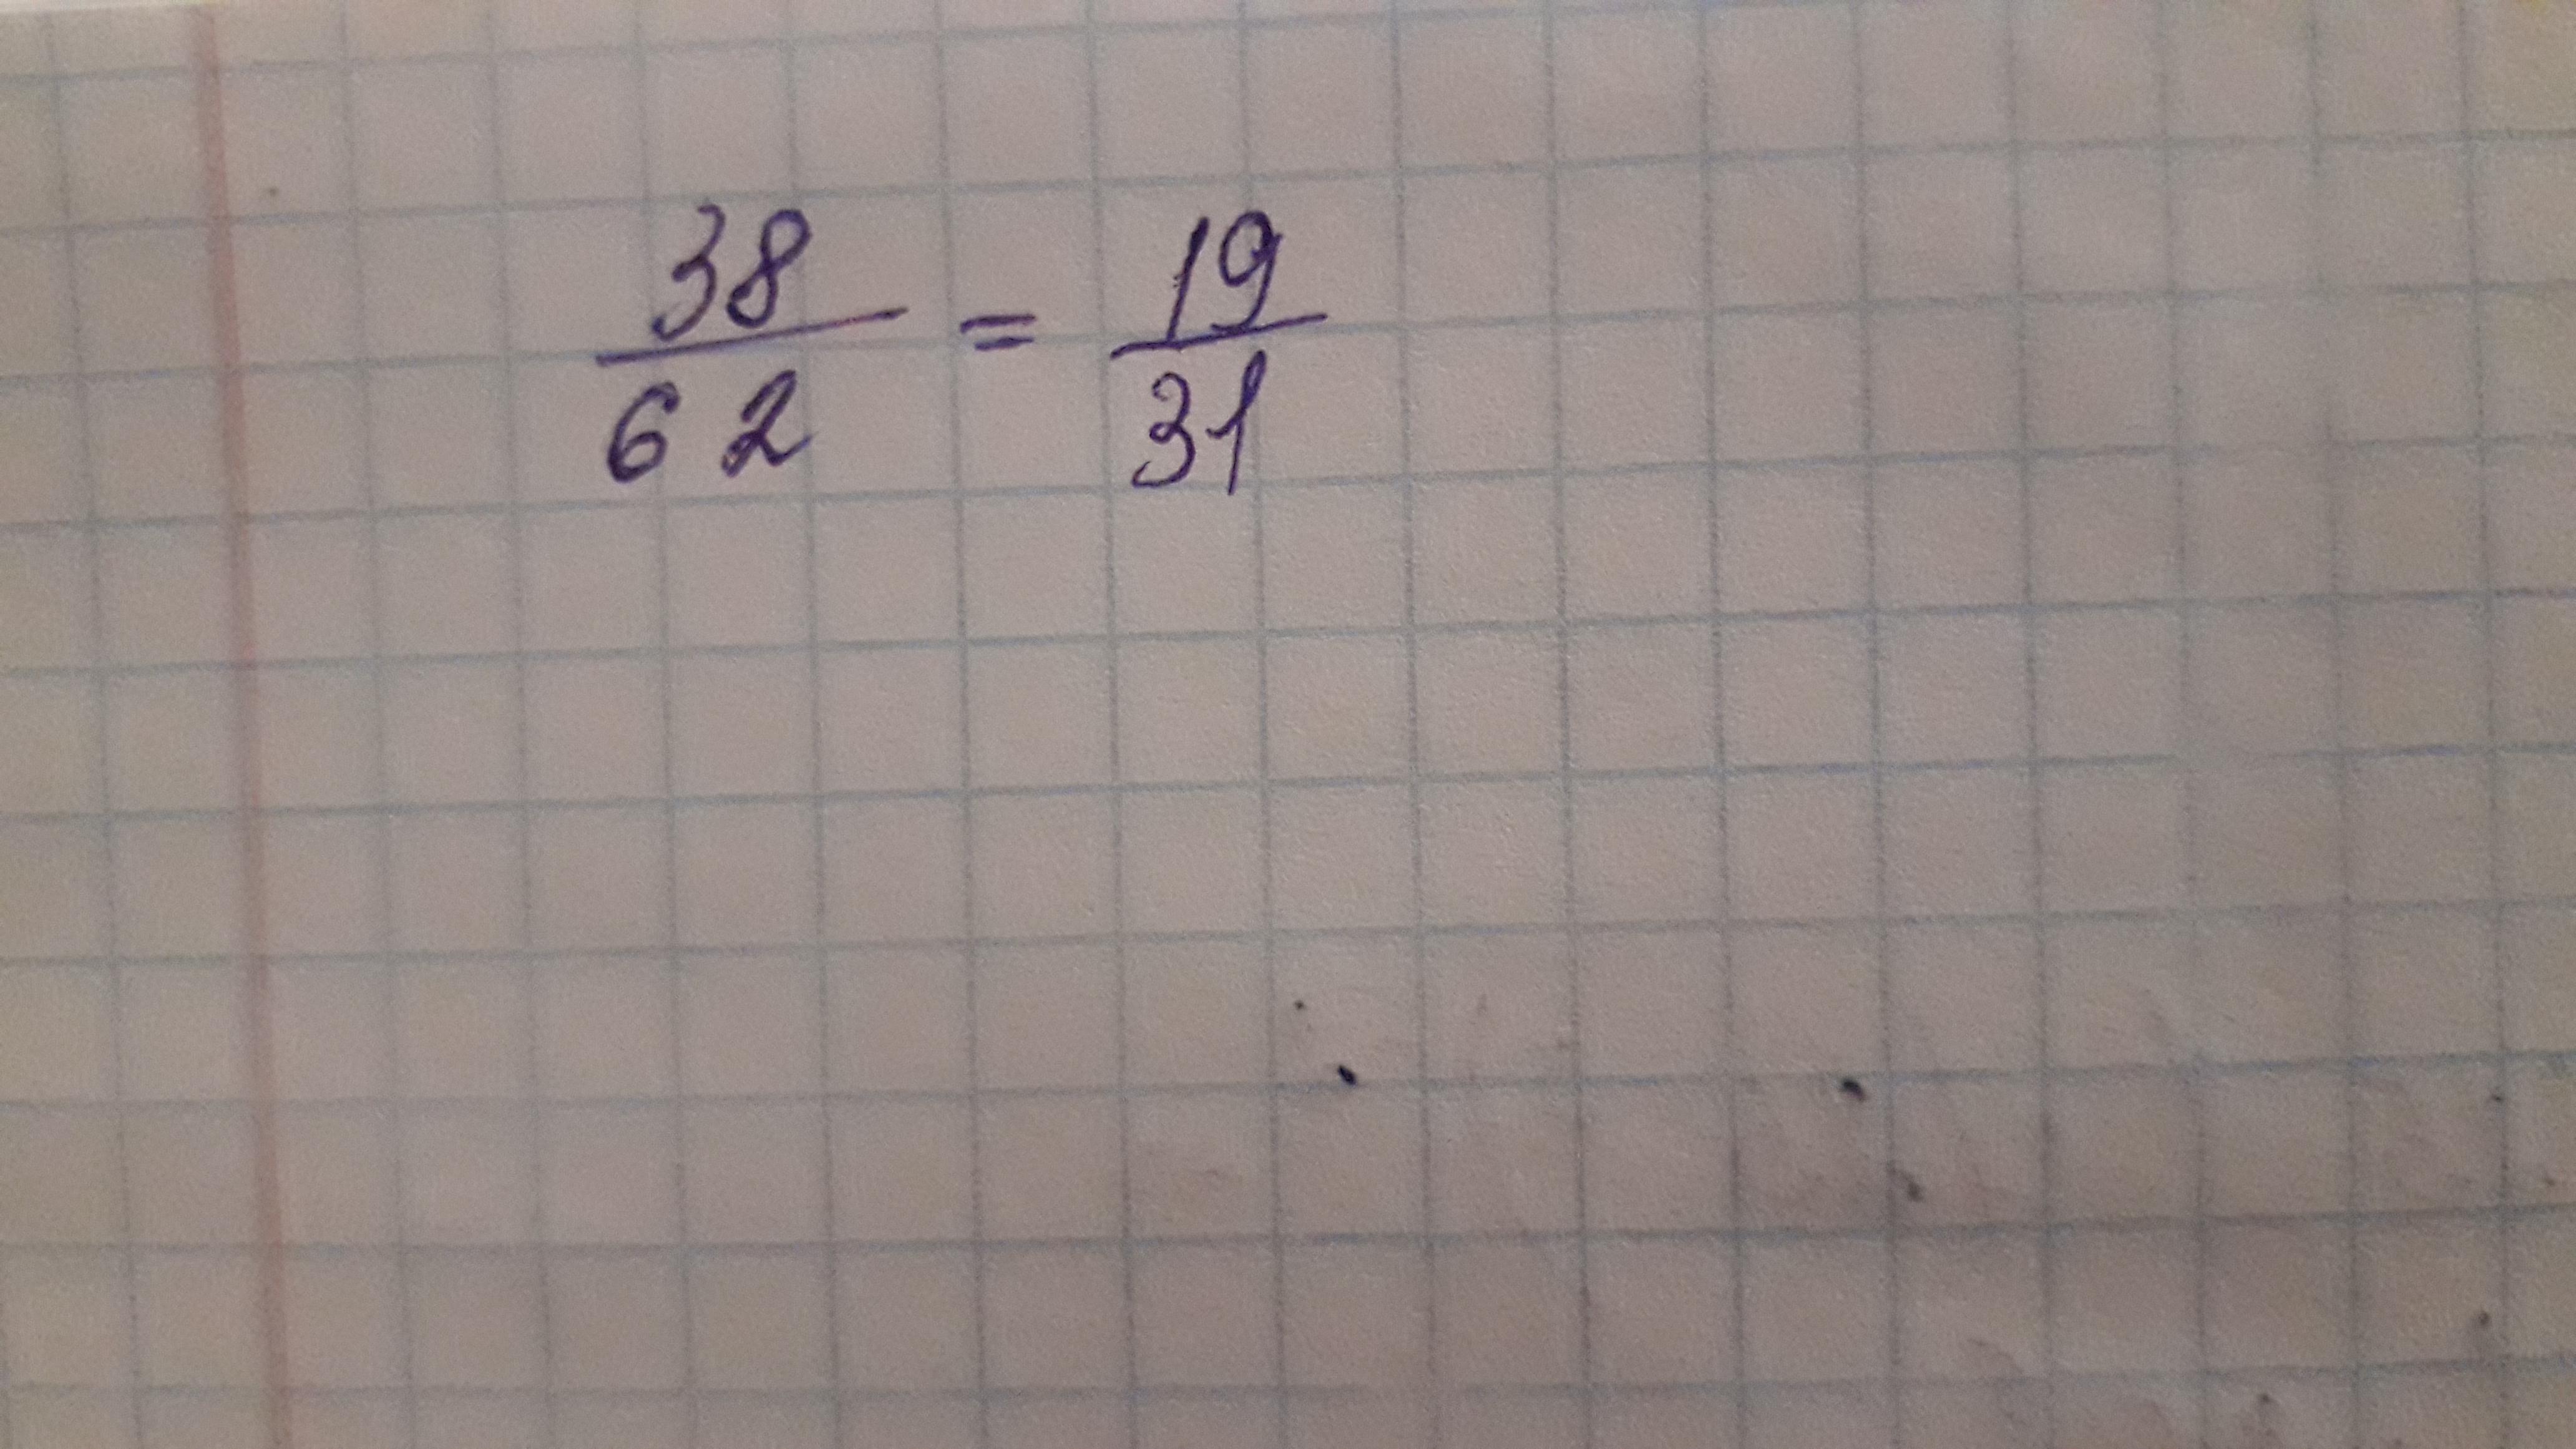 38/62 = 19/31